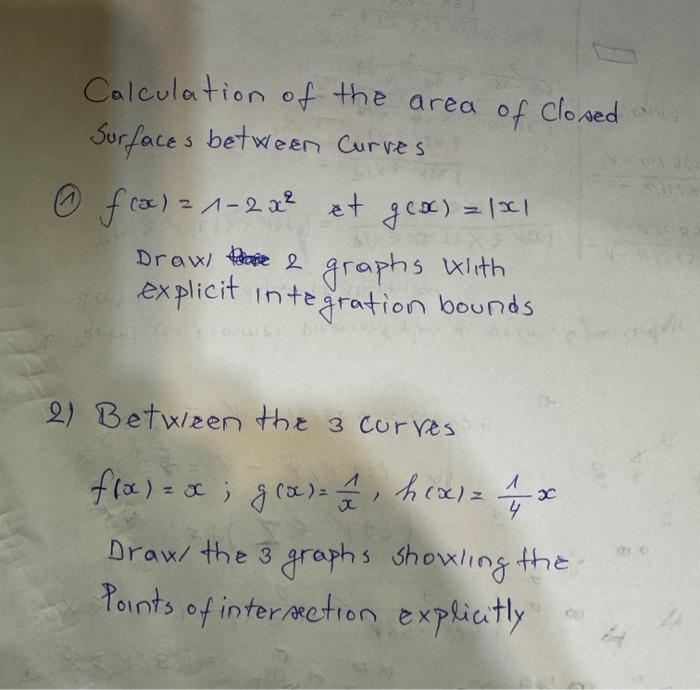 Calculation of the area of closed
Surfaces between curves
① f(x) = 1-2x² et g(x) = |x|
Draw 2 graphs with
explicit integration bounds
2) Between the 3 curves
f(x) = x ; g(x) = 1/x , h(x) = 1/4 x
Draw the 3 graphs showing the
Points of intersection explicitly